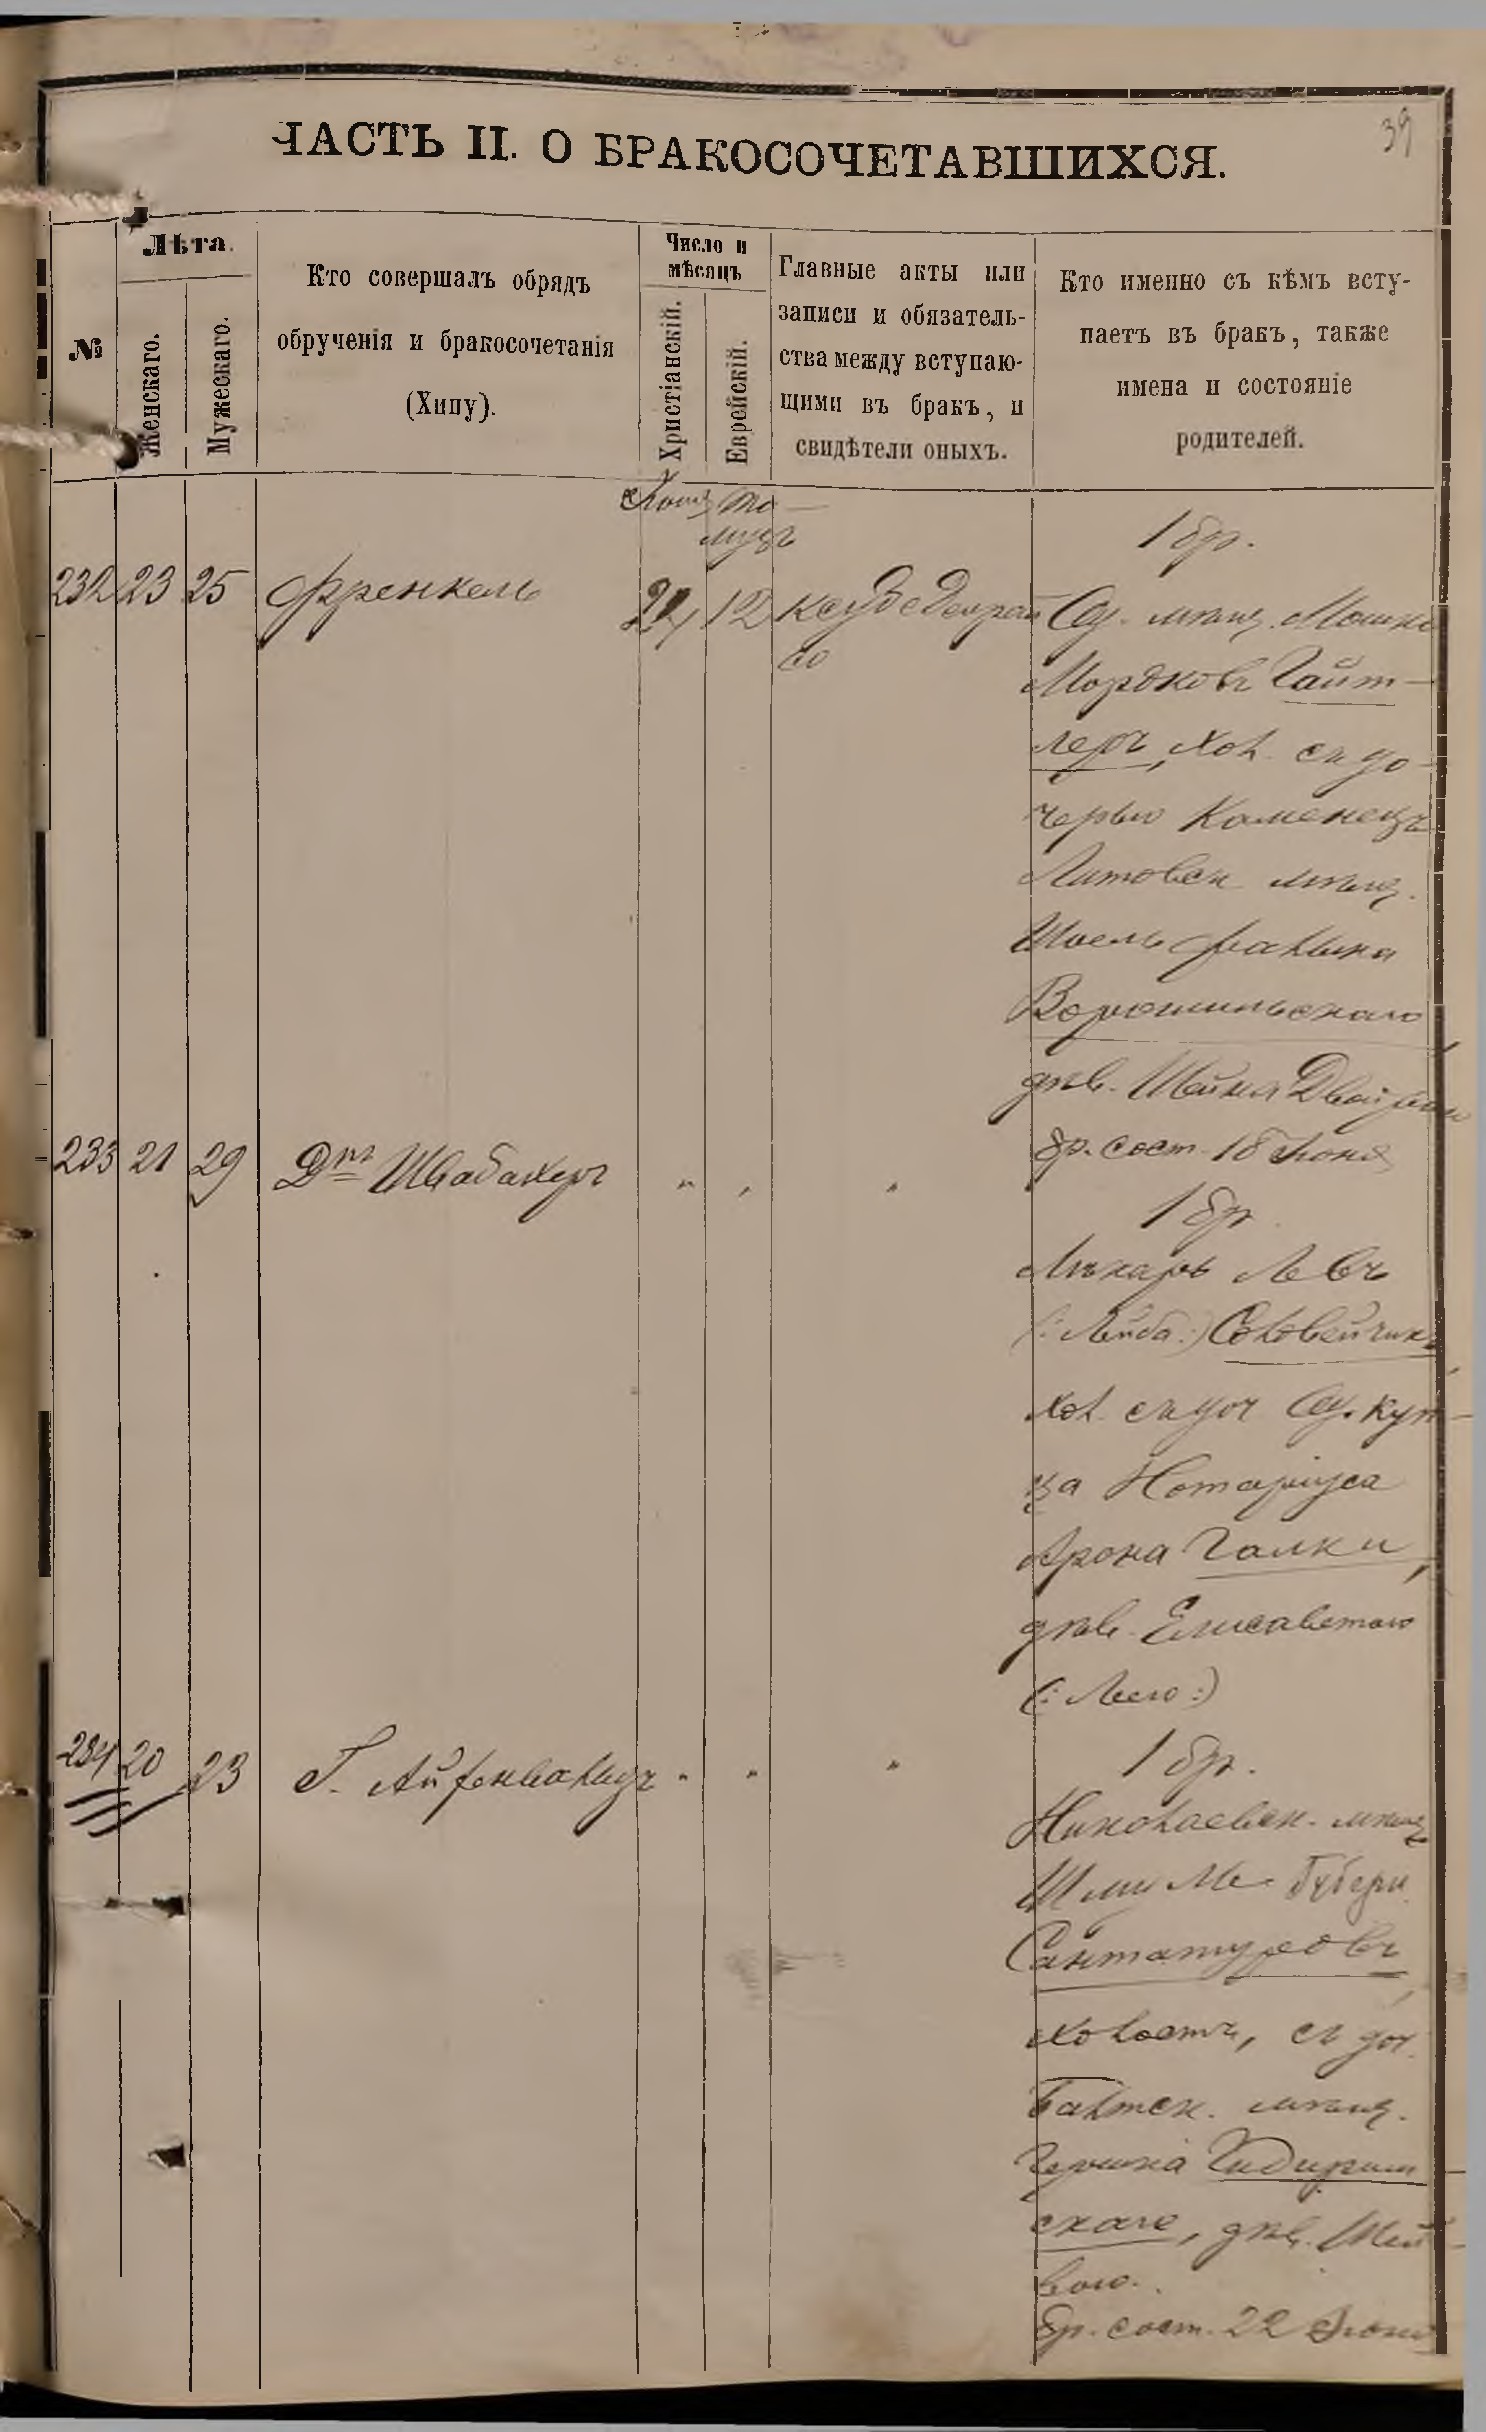 39
ЧАСТЬ II. О БРАКОСОЧЕТАВШИХСЯ.
№
Лѣта.
Женскаго.
Мужескаго.
Кто совершалъ обрядъ
обрученія и бракосочетанія
(Хипу).
Число и
мѣсяцъ
Христіанскій.
Еврейскій.
Главные акты или
записи и обязатель-
ства между вступаю-
щими въ бракъ, и
свидѣтели оныхъ.
Кто именно съ кѣмъ всту-
паетъ въ бракъ, также
имена и состояніе
родителей.
Та-
музъ
1 бр.
232 23 25 Френкель 12 Од. мѣщ. Мошко
Мордковъ Гайт-
леръ, хол. съ до-
черью Каменецъ
Литовск мѣщ.
Шоель
дѣв. Шейна
233 21 29 Дръ Швабахеръ " " "
бр. сост. 18 Іюня
1 бр.
Лѣкарь Левъ
(: Лейба :) Соловейчикъ,
хол. съ доч Од. куп-
ца Нотаріуса
Арона Галки,
дѣв. Елисаветою
(: Леею :)
234 20 23 Г. " " "
1 бр.
Николаевск. мѣщ
Губерн.
Сантатуровъ,
холостъ, съ доч.
Балтск. мѣщ.
Гершка
скаго, дѣв. Шей-
вою.
бр. сост. 22 Іюня